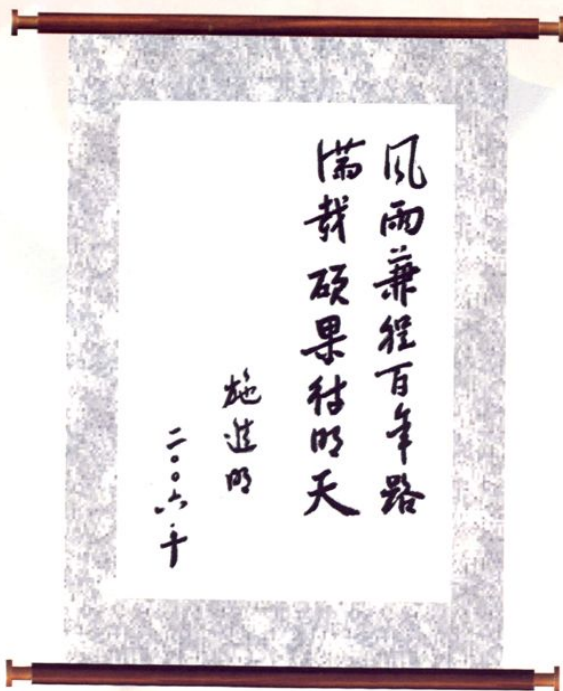 风雨兼程百年路
满载硕果待明天
施進明
二〇〇六年